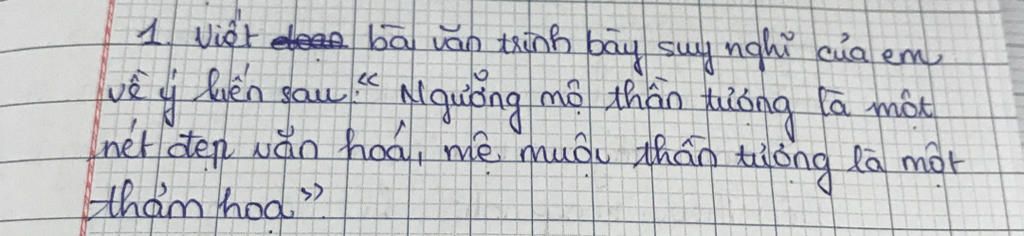 1. Viết bài văn trình bày suy nghĩ của em
về ý kiến sau: "Ngưỡng mộ thần tượng là một
nét đẹp văn hoá, mê muội thần tượng là một
thảm hoạ"